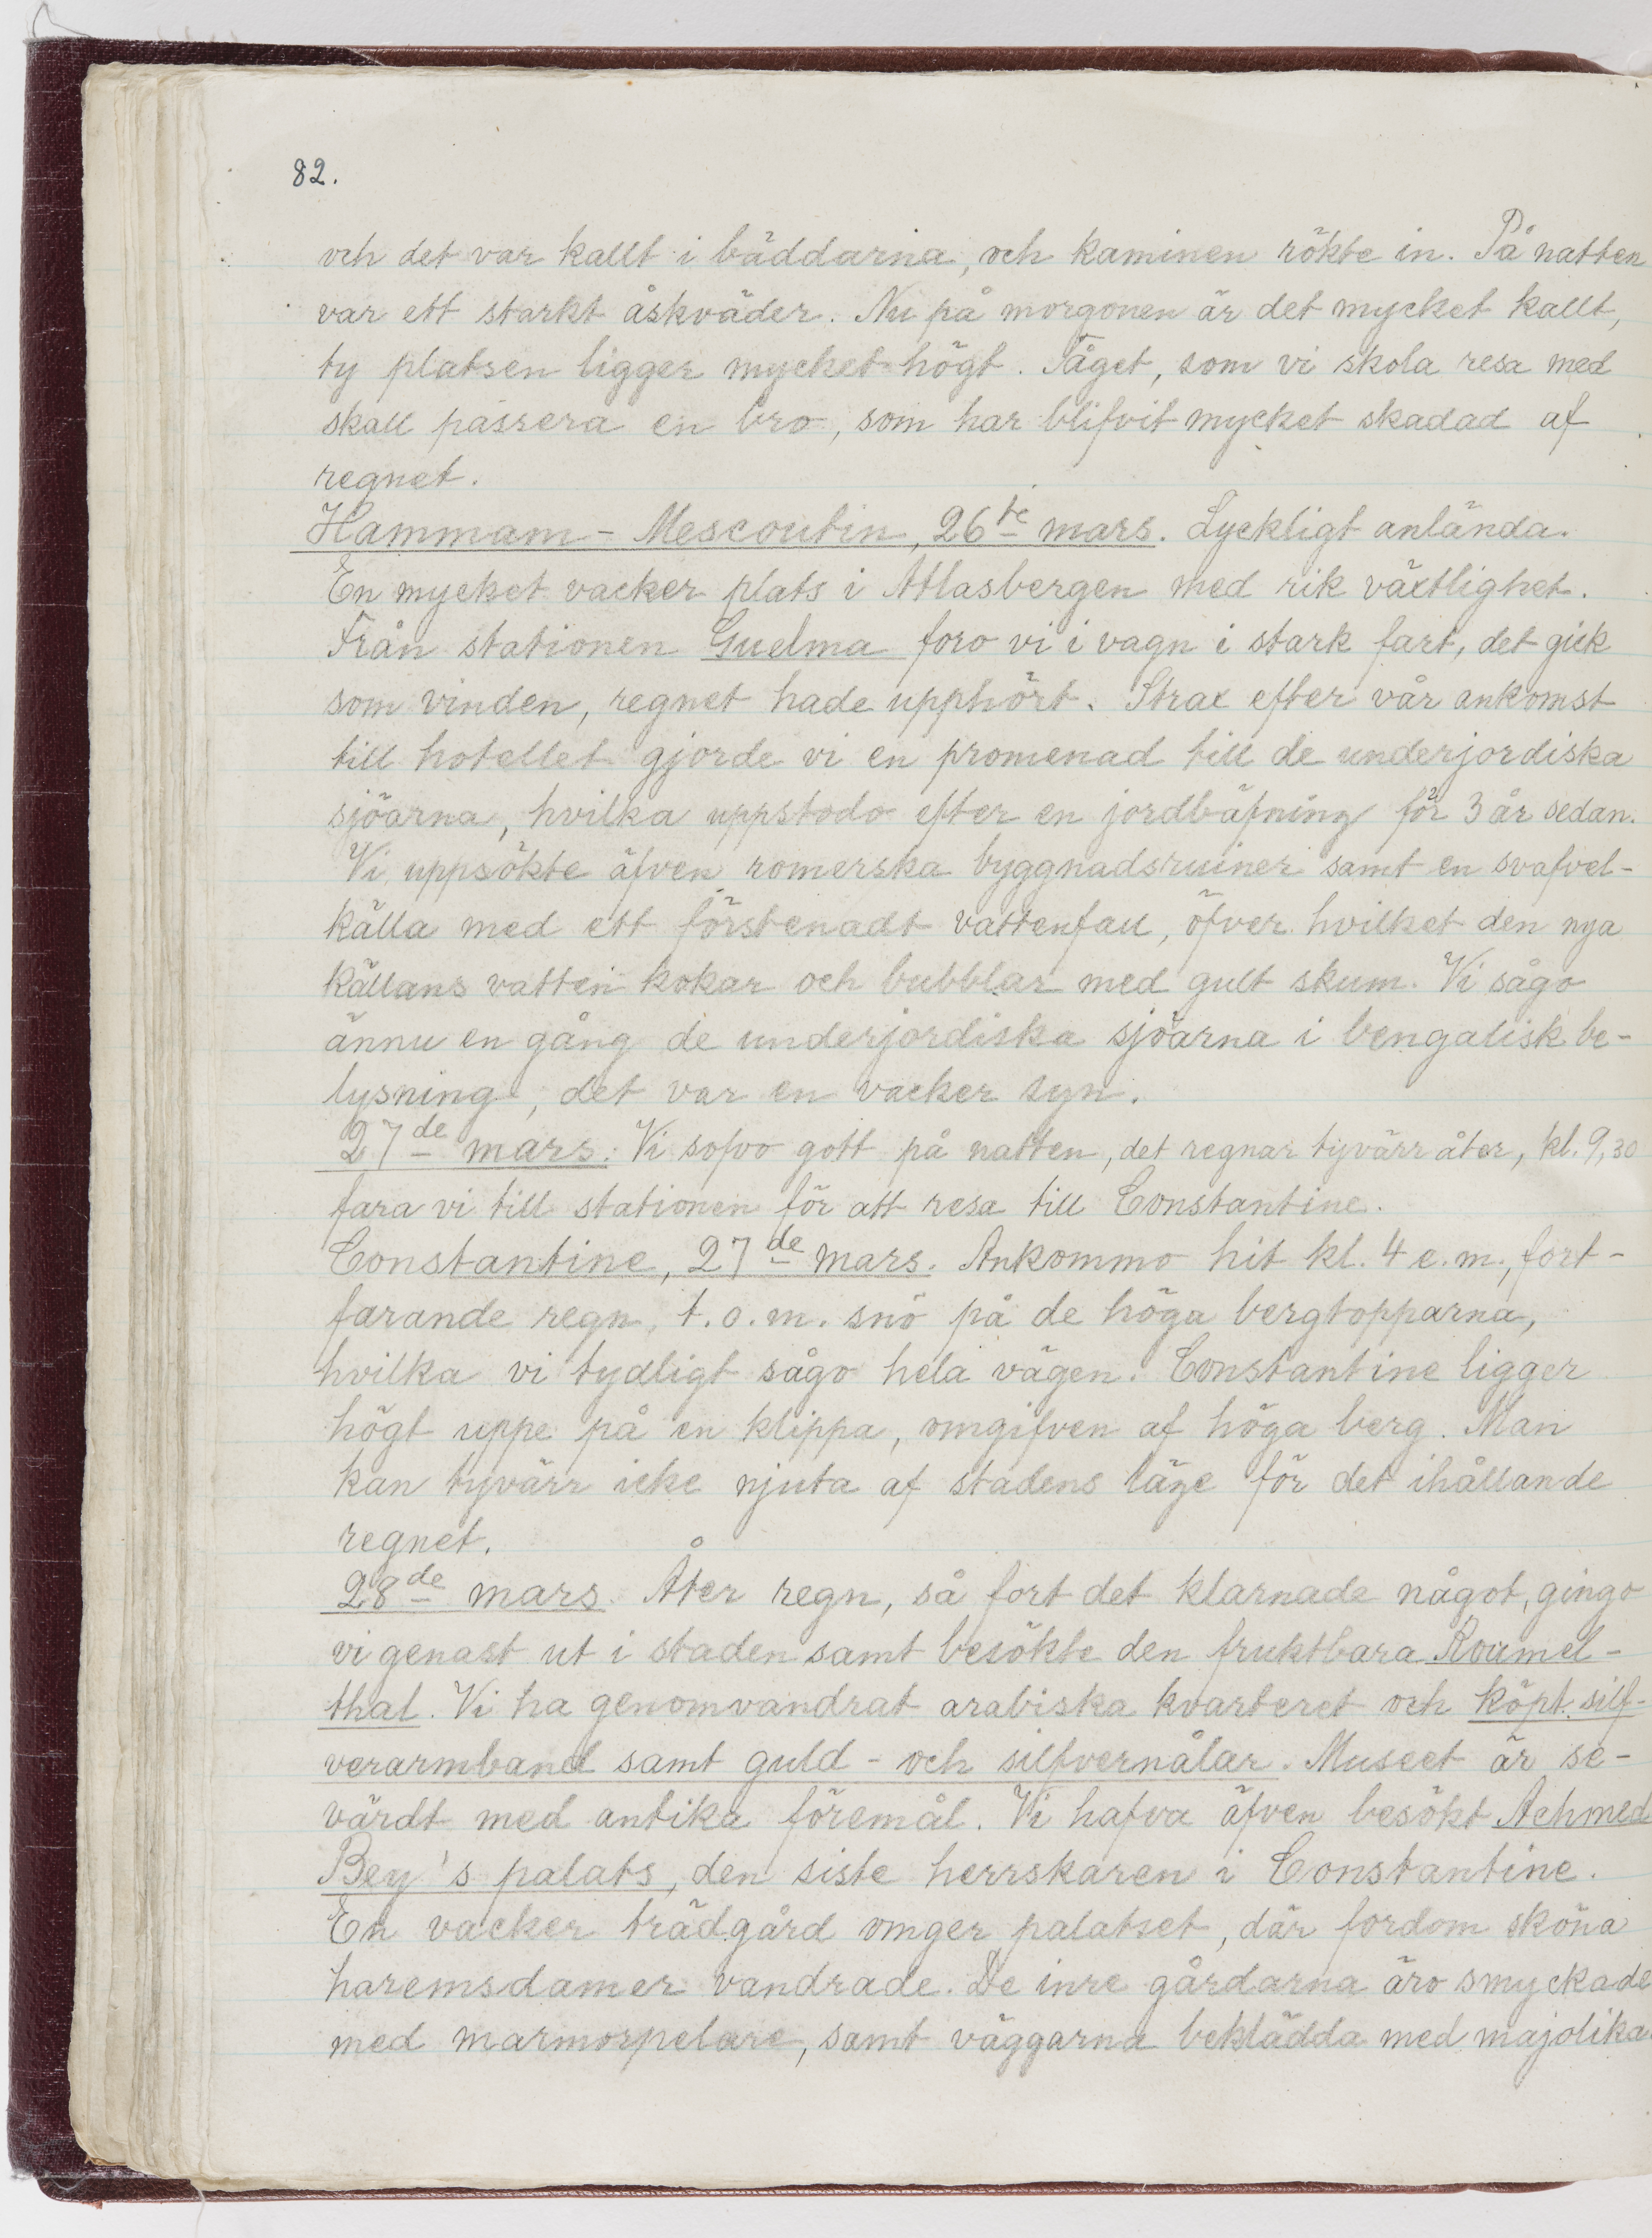 82.
och det var kallt i bäddarna, och kaminen rökte in. På natten
var ett starkt åskväder. Nu på morgonen är det mycket kallt,
ty platsen ligger mycket högt. Tåget, som vi skola resa med
skall passera en bro, som har blifvit mycket skadad af
regnet.
Hammam-Mescoutin, 26te mars. Lyckligt anlända.
En mycket vacker plats i Atlasbergen med rik växtlighet.
Från stationen Guelma foro vi i vagn i stark fart, det gick
som vinden, regnet hade upphört. Strax efter vår ankomst
till hotellet gjorde vi en promenad till de underjordiska
sjöarna, hvilka uppstodo efter en jordbäfning för 3 år sedan.
Vi uppsökte äfven romerska byggnadsruiner samt en svafvel-
källa med ett förstenadt vattenfall, öfver hvilket den nya
källans vatten kokar och bubblar med gult skum. Vi sågo
ännu en gång de underjordiska sjöarna i bengalisk be-
lysning, det var en vacker syn.
27de mars. Vi sofvo gott på natten, det regnar tyvärr åter, kl. 9,30
fara vi till stationen för att resa till Constantine.
Constantine, 27de mars. Ankommo hit kl. 4 e.m., fort-
farande regn, t.o.m. snö på de höga bergtopparna,
hvilka vi tydligt sågo hela vägen. Constantine ligger
högt uppe på en klippa, omgifven af höga berg. Man
kan tyvärr icke njuta af stadens läge för det ihållande
regnet.
28de mars. Åter regn, så fort det klarnade något, gingo
vi genast ut i staden samt besökte den fruktbara Roumel-
thal. Vi ha genomvandrat arabiska kvarteret och köpt silf-
verarmband samt guld- och silfvernålar. Museet är se-
värdt med antika föremål. Vi hafva äfven besökt Achmed
Bey's palats, den siste herrskaren i Constantine.
En vacker trädgård omger palatset, där fordom sköna
haremsdamer vandrade. De inre gårdarna äro smyckade
med marmorpelare, samt väggarna beklädda med majolika